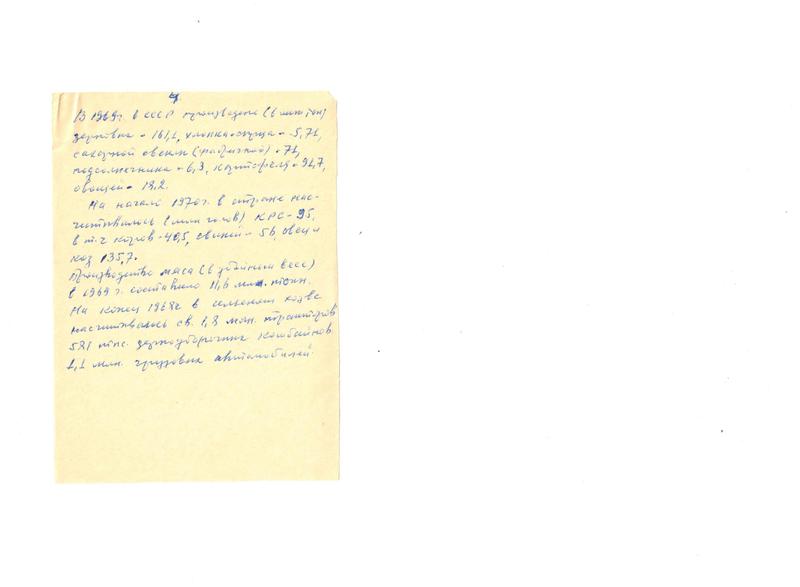 4.
В 1969 г. в СССР произведено (в млн тон)
зерновых - 161,1, хлопка-сырца - 5,71,
сахарной свеклы (фабричной) - 71,
подсолнечника - 6,3, картофеля - 91,7,
овощей - 18,2.
На начало 1970 г. в стране нас-
читывалось (млн голов) КРС - 95,
в т.ч коров - 40,5, свиней - 56, овец и
коз 135,7.
Производство мяса (в убойном весе)
в 1969 г. составило 11,6 млн. тонн.
На конец 1968 г в сельском хоз-ве
насчитывалось св. 1,8 млн. тракторов
581 тыс. зерноуборочных комбайнов
1,1 млн. грузовых автомобилей.